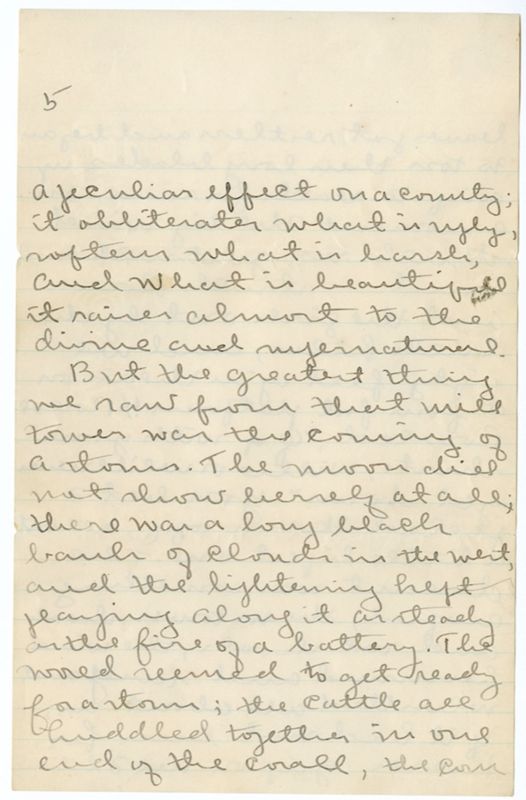 5
a peculiar effect on a county;
it obliterates what is ugly,
softens what is harsh,
and what is beautiful
it raises almost to the
divine and supernatural.
But the greatest thing
we saw from that mill
tower was the coming of
a storm. The moon did
not show herself at all;
there was a long black
bank of clouds in the west,
and the lightening kept
playing along it as steady
as the fire of a battery. The
world seemed to get ready
for a storm; the cattle all
huddled together in one
end of the corall, the corn